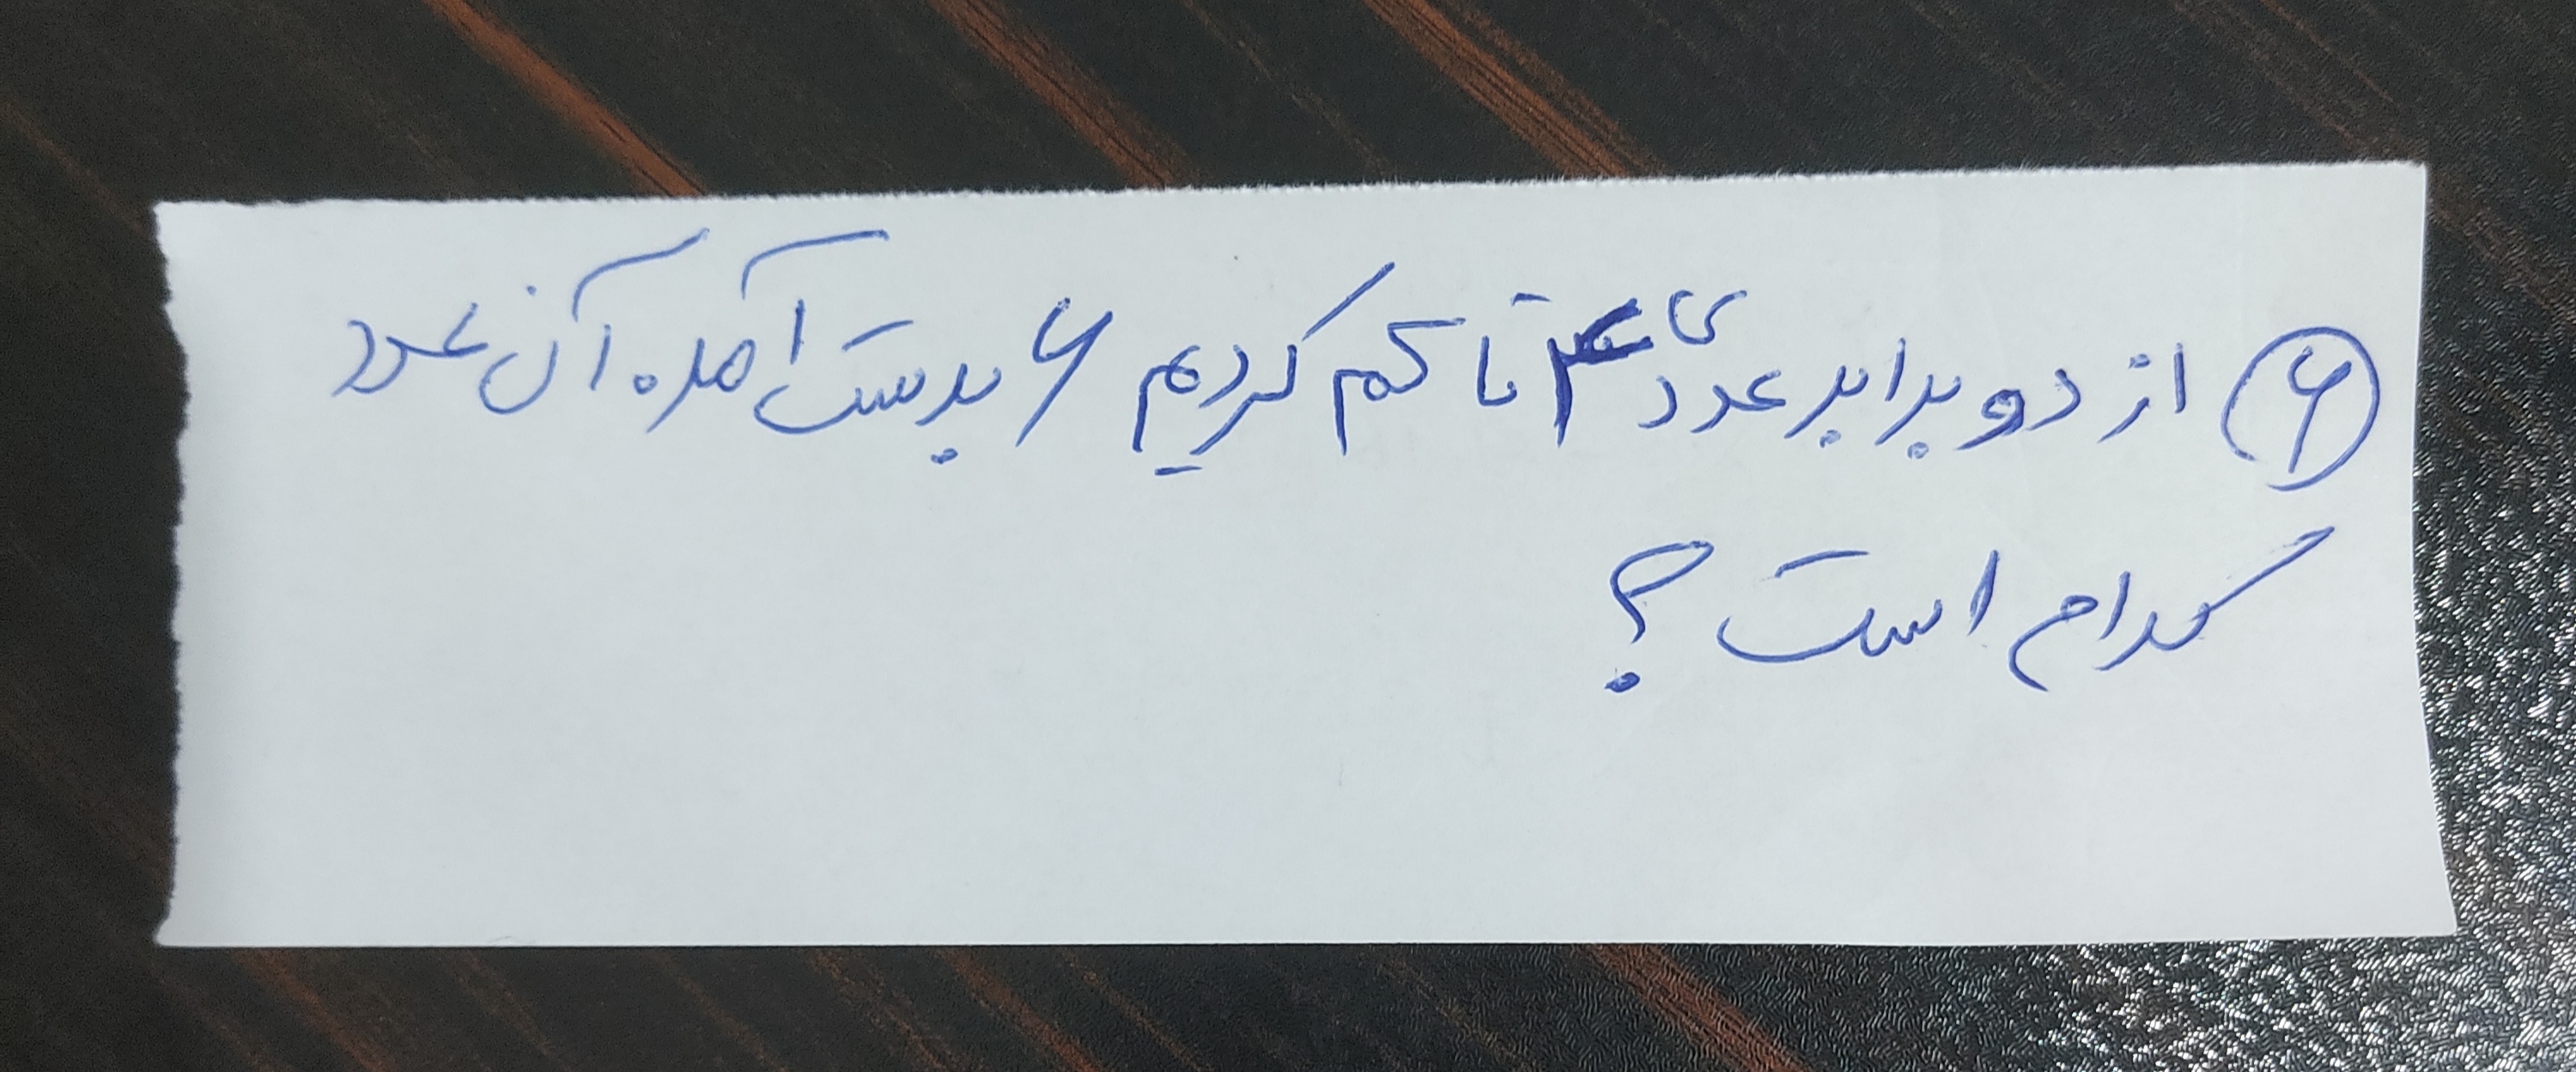 ۶ از دو برابر عددی ۴ تا کم کردیم ۶ بدست آمده آن عدد
کدام است؟